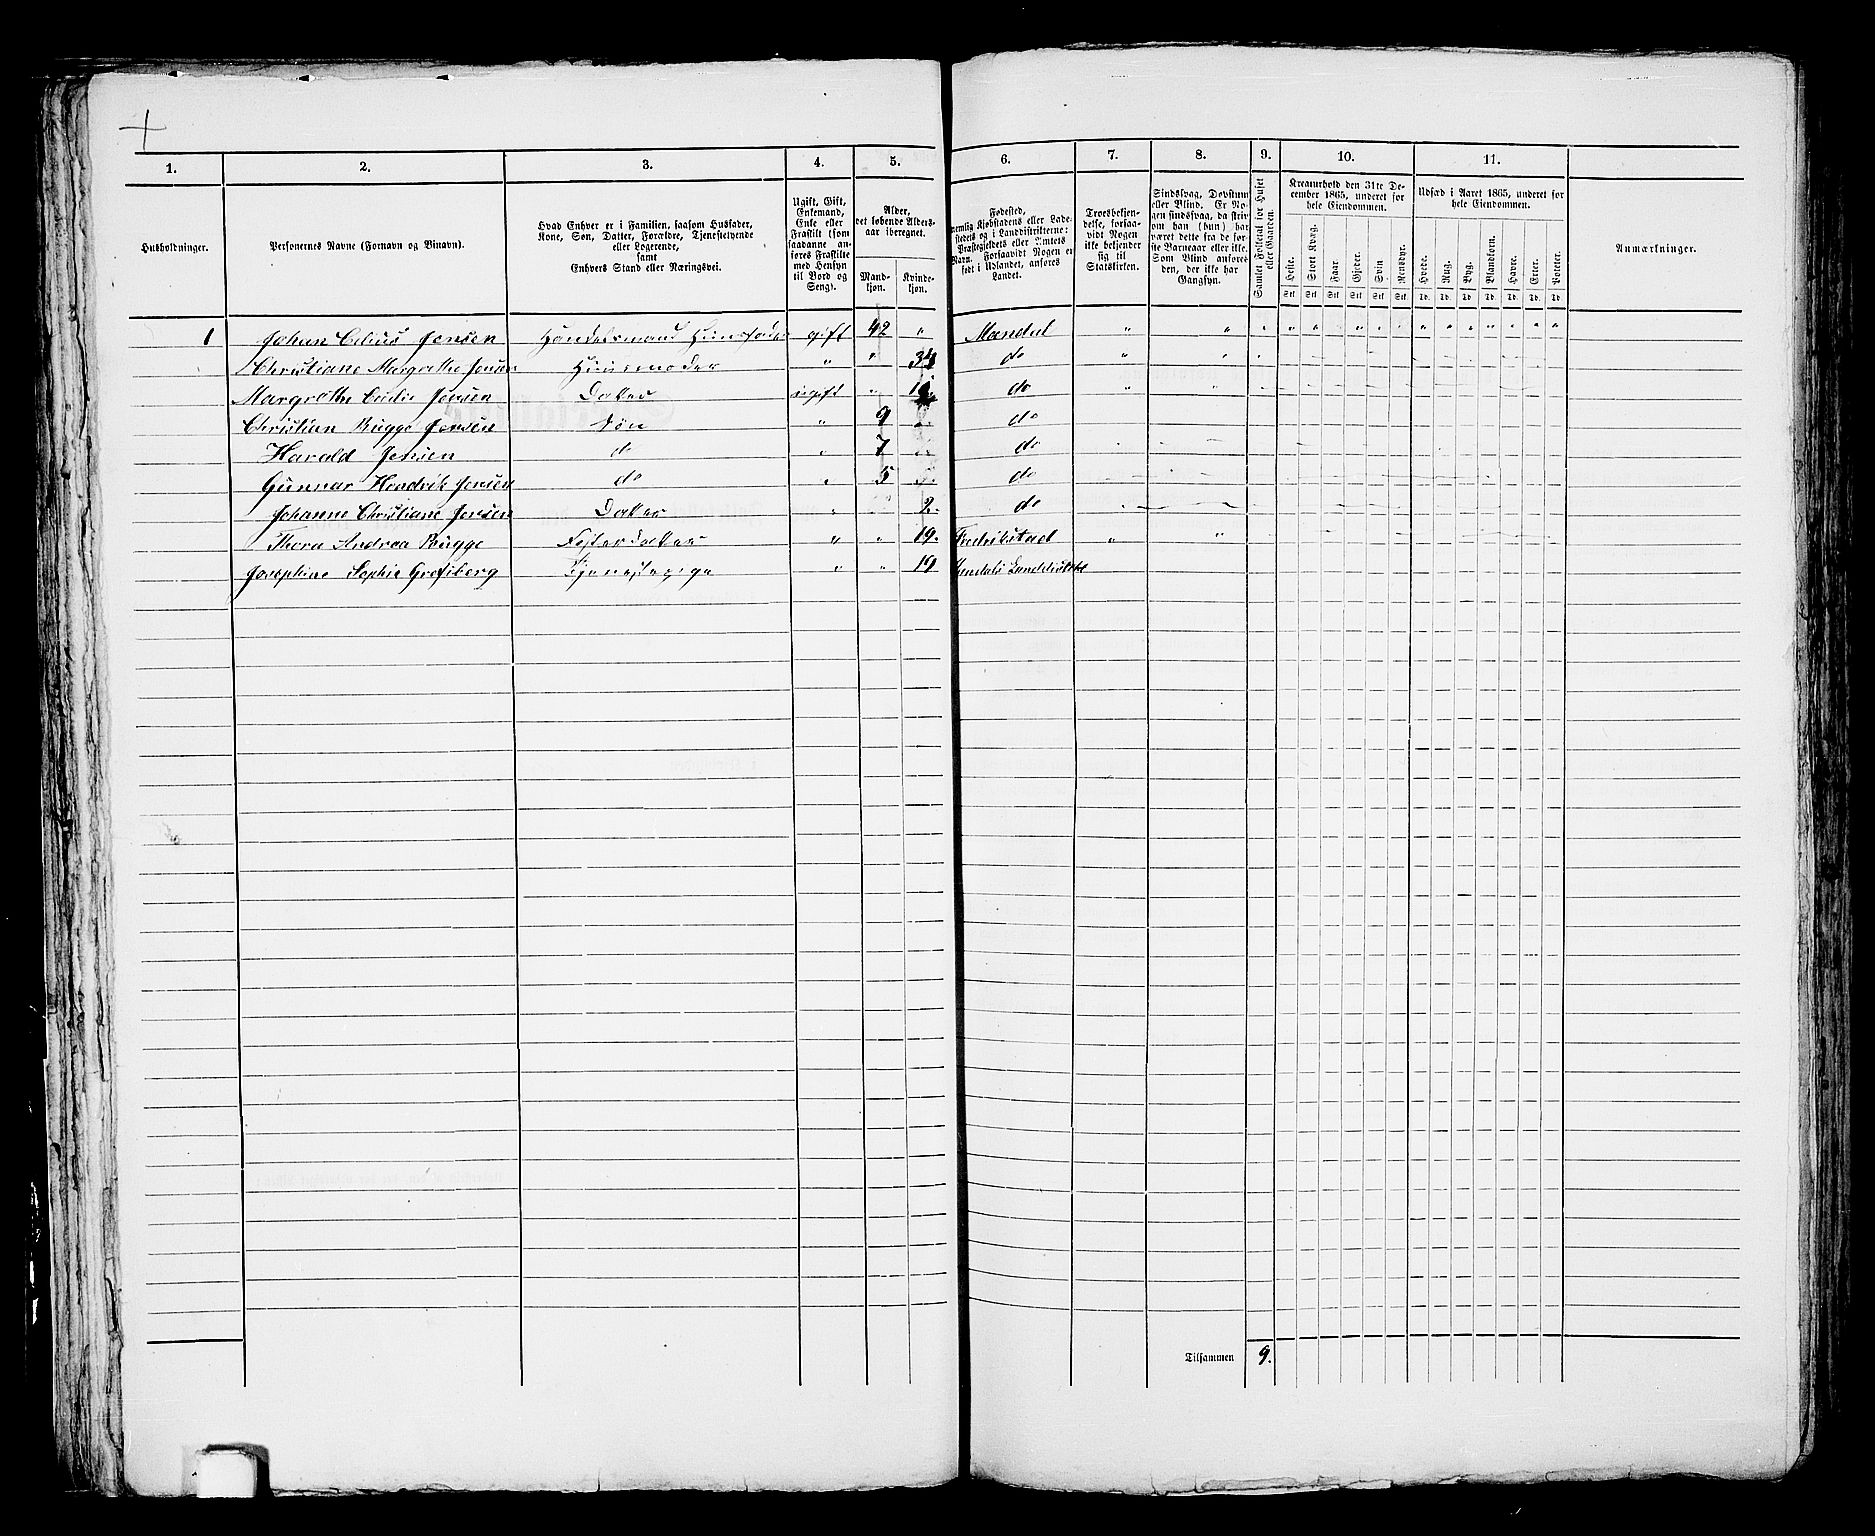 1. 2. 3. 4. 5. 6. 7. 8. 9. 10. 11.
Husholdninger.
Personernes Navne (Fornavn og Binavn).
Hvad Enhver er i Familien, saasom Husfader,
Kone, Søn, Datter, Forældre, Tjenestetyende
eller Logerende,
samt
Enhvers Stand eller Næringsvei.
Ugift, Gift,
Enkemand,
Enke eller
Fraskilt (som
saadanne an-
føres Fraskilte
med Hensyn
til Bord og
Seng).
Alder,
det løbende Alders-
aar iberegnet.
Mand-
kjøn.
Kvinde-
kjøn.
Fødested,
nemlig Kjøbstadens eller Lade-
stedets og i Landdistrikterne:
Præstegjeldets eller Amtets
Navn. Forsaavidt Nogen er
født i Udlandet, anføres
Landet.
Troesbekjen-
delse, forsaa-
vidt Nogen
ikke bekjender
sig til
Statskirken.
Sindssvag, Døvstum
eller Blind. Er No-
gen sindssvag, da skriv
om han (hun) har
været dette fra de før-
ste Barneaar eller ikke.
Som Blind anføres
den, der ikke har
Gangsyn.
Samlet Folketal for Huset
eller Gaarden.
Kreaturhold den 31te De-
cember 1865, underet for
hele Eiendommen.
Heste. Stort Kvæg. Faar. Gjeder. Svin. Rensdyr.
Stk Stk Stk Stk Stk Stk
Udsæd i Aaret 1865, underet for
hele Eiendommen.
Hvede. Rug. Byg. Blandkorn. Havre. Erter. Poteter.
Td. Td. Td. Td. Td. Td. Td.
Anmærkninger.
1 Johan Jensen Handelsmand Huusfader gift 42 " Mandal " "
Christiane Margrethe Jensen Huusmoder " " 34 do " "
Margrethe Jensen Datter ugift " do " "
Christian Bugge Jensen Søn " 9 do
Harald Jensen do " 7 do
Gunnar Hendrik Jensen do " 5 do
Johanne Christiane Jensen Datter " 2. do
Thora Andrea Bugge Fosterdatter " " 19. Fredrikstad " "
Josephine Sophie Tjenestepige " " 19
Tilsammen 9.